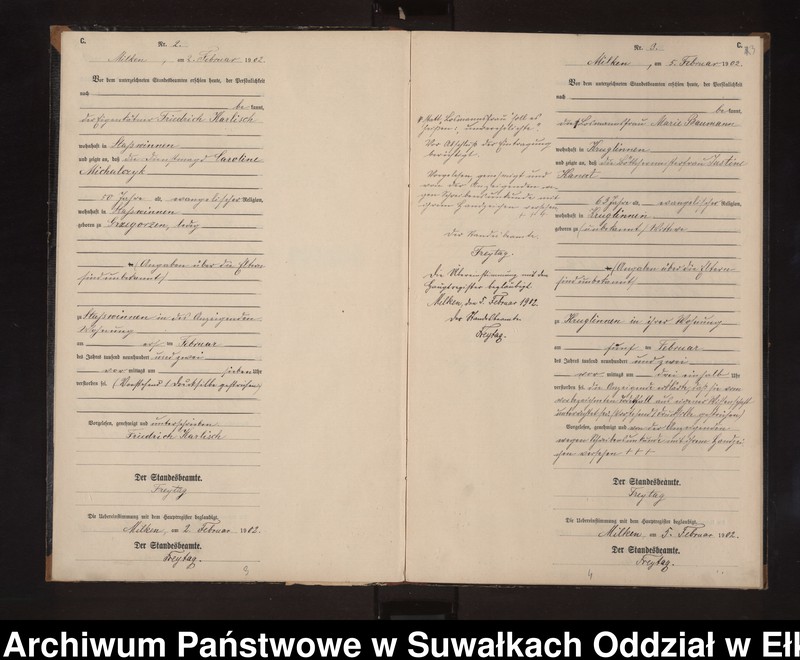 C.
Nr. 2.
Milken, am 2. Februar 1902.
Vor dem unterzeichneten Standesbeamten erschien heute, der Persönlichkeit
nach
be kannt,
der Eigenkätner Friedrich Karlisch
wohnhaft in Staßwinnen
und zeigte an, daß die Dienstmagd Caroline
Michalczyk
50 Jahre alt, evangelischer Religion,
wohnhaft in Staßwinnen
geboren zu Grzegorzen, ledig
(Angaben über die Eltern
sind unbekannt)
zu Staßwinnen in des Anzeigenden
Wohnung
am ersten Februar
des Jahres tausend neunhundert und zwei
vor mittags um sieben Uhr
verstorben sei. (Vorstehend Druckseite gestrichen)
Vorgelesen, genehmigt und unterschrieben
Friedrich Karlisch
Der Standesbeamte.
Freytag
Die Uebereinstimmung mit dem Hauptregister beglaubigt,
Milken, am 2. Februar 1902.
Der Standesbeamte.
Freytag.
3
Statt Losmannsfrau soll es
heißen: "unverehelichte".
Vor Abschluß der Eintragung
berichtigt.
Vorgelesen, genehmigt und
von der Anzeigenden we-
gen Schreibensunkunde mit
ihrem Handzeichen versehen
+ + +
Der Standesbeamte
Freytag.
Die Übereinstimmung mit dem
Hauptregister beglaubigt
Milken, den 5. Februar 1902.
Der Standesbeamte
Freytag.
C.
83
Nr. 3.
Milken, am 5. Februar 1902.
Vor dem unterzeichneten Standesbeamten erschien heute, der Persönlichkeit
nach
be kannt,
die Losmannsfrau Marie Baumann
wohnhaft in Kruglinnen
und zeigte an, daß die
Jahre alt, evangelischer Religion,
wohnhaft in Kruglinnen
geboren zu (unbekannt) Wittwe
(Angaben über die Eltern
sind unbekannt)
zu Kruglinnen in ihrer Wohnung
am fünften Februar
des Jahres tausend neunhundert und zwei
vor mittags um drei einhalb Uhr
verstorben sei. Die Anzeigende erklärte, daß sie von
dem bezeichneten Sterbefall aus eigener Wissenschaft
unterrichtet sei.
Vorgelesen, genehmigt und von der Anzeigenden
wegen Schreibensunkunde mit ihrem Handzei-
chen versehen + + +
Der Standesbeamte.
Freytag
Die Uebereinstimmung mit dem Hauptregister beglaubigt,
Milken, am 5. Februar 1902.
Der Standesbeamte.
Freytag.
4
Archiwum Państwowe w Suwałkach Oddział w Ełk